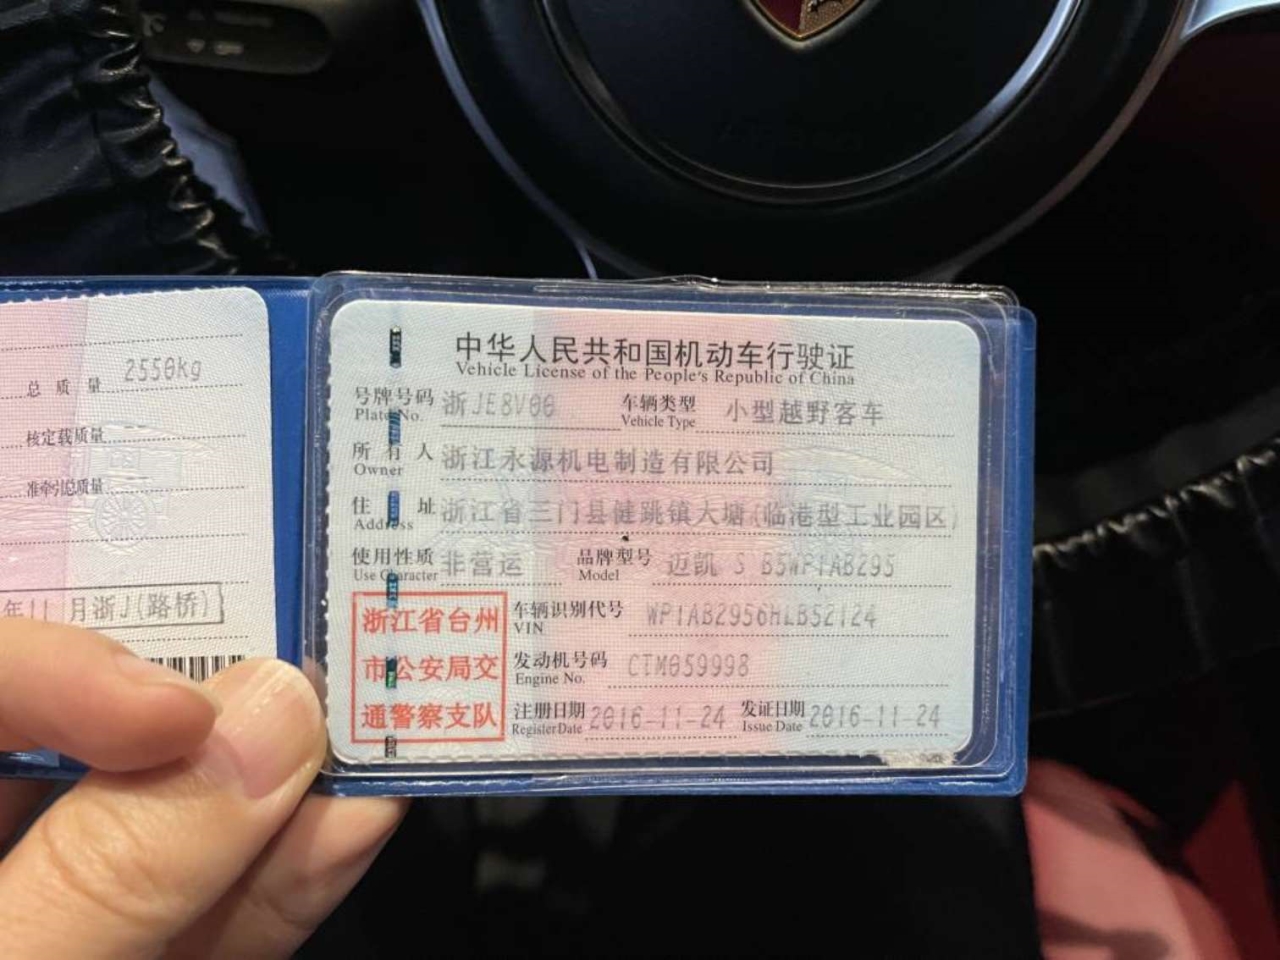 总质量 2550kg
核定载质量
准牵引总质量
年11月浙J(路桥)
中华人民共和国机动车行驶证
Vehicle License of the People's Republic of China
号牌号码 浙JE8V00 车辆类型 小型越野客车
Plate No. Vehicle Type
所有人 浙江永源机电制造有限公司
Owner
住址 浙江省三门县健跳镇大塘(临港型工业园区)
Address
使用性质 非营运 品牌型号 迈凯 S B5WP1AB295
Use Character Model
浙江省台州
市公安局交
通警察支队
车辆识别代号 WP1AB2956HLB52124
VIN
发动机号码 CTM059998
Engine No.
注册日期 2016-11-24 发证日期 2016-11-24
Register Date Issue Date